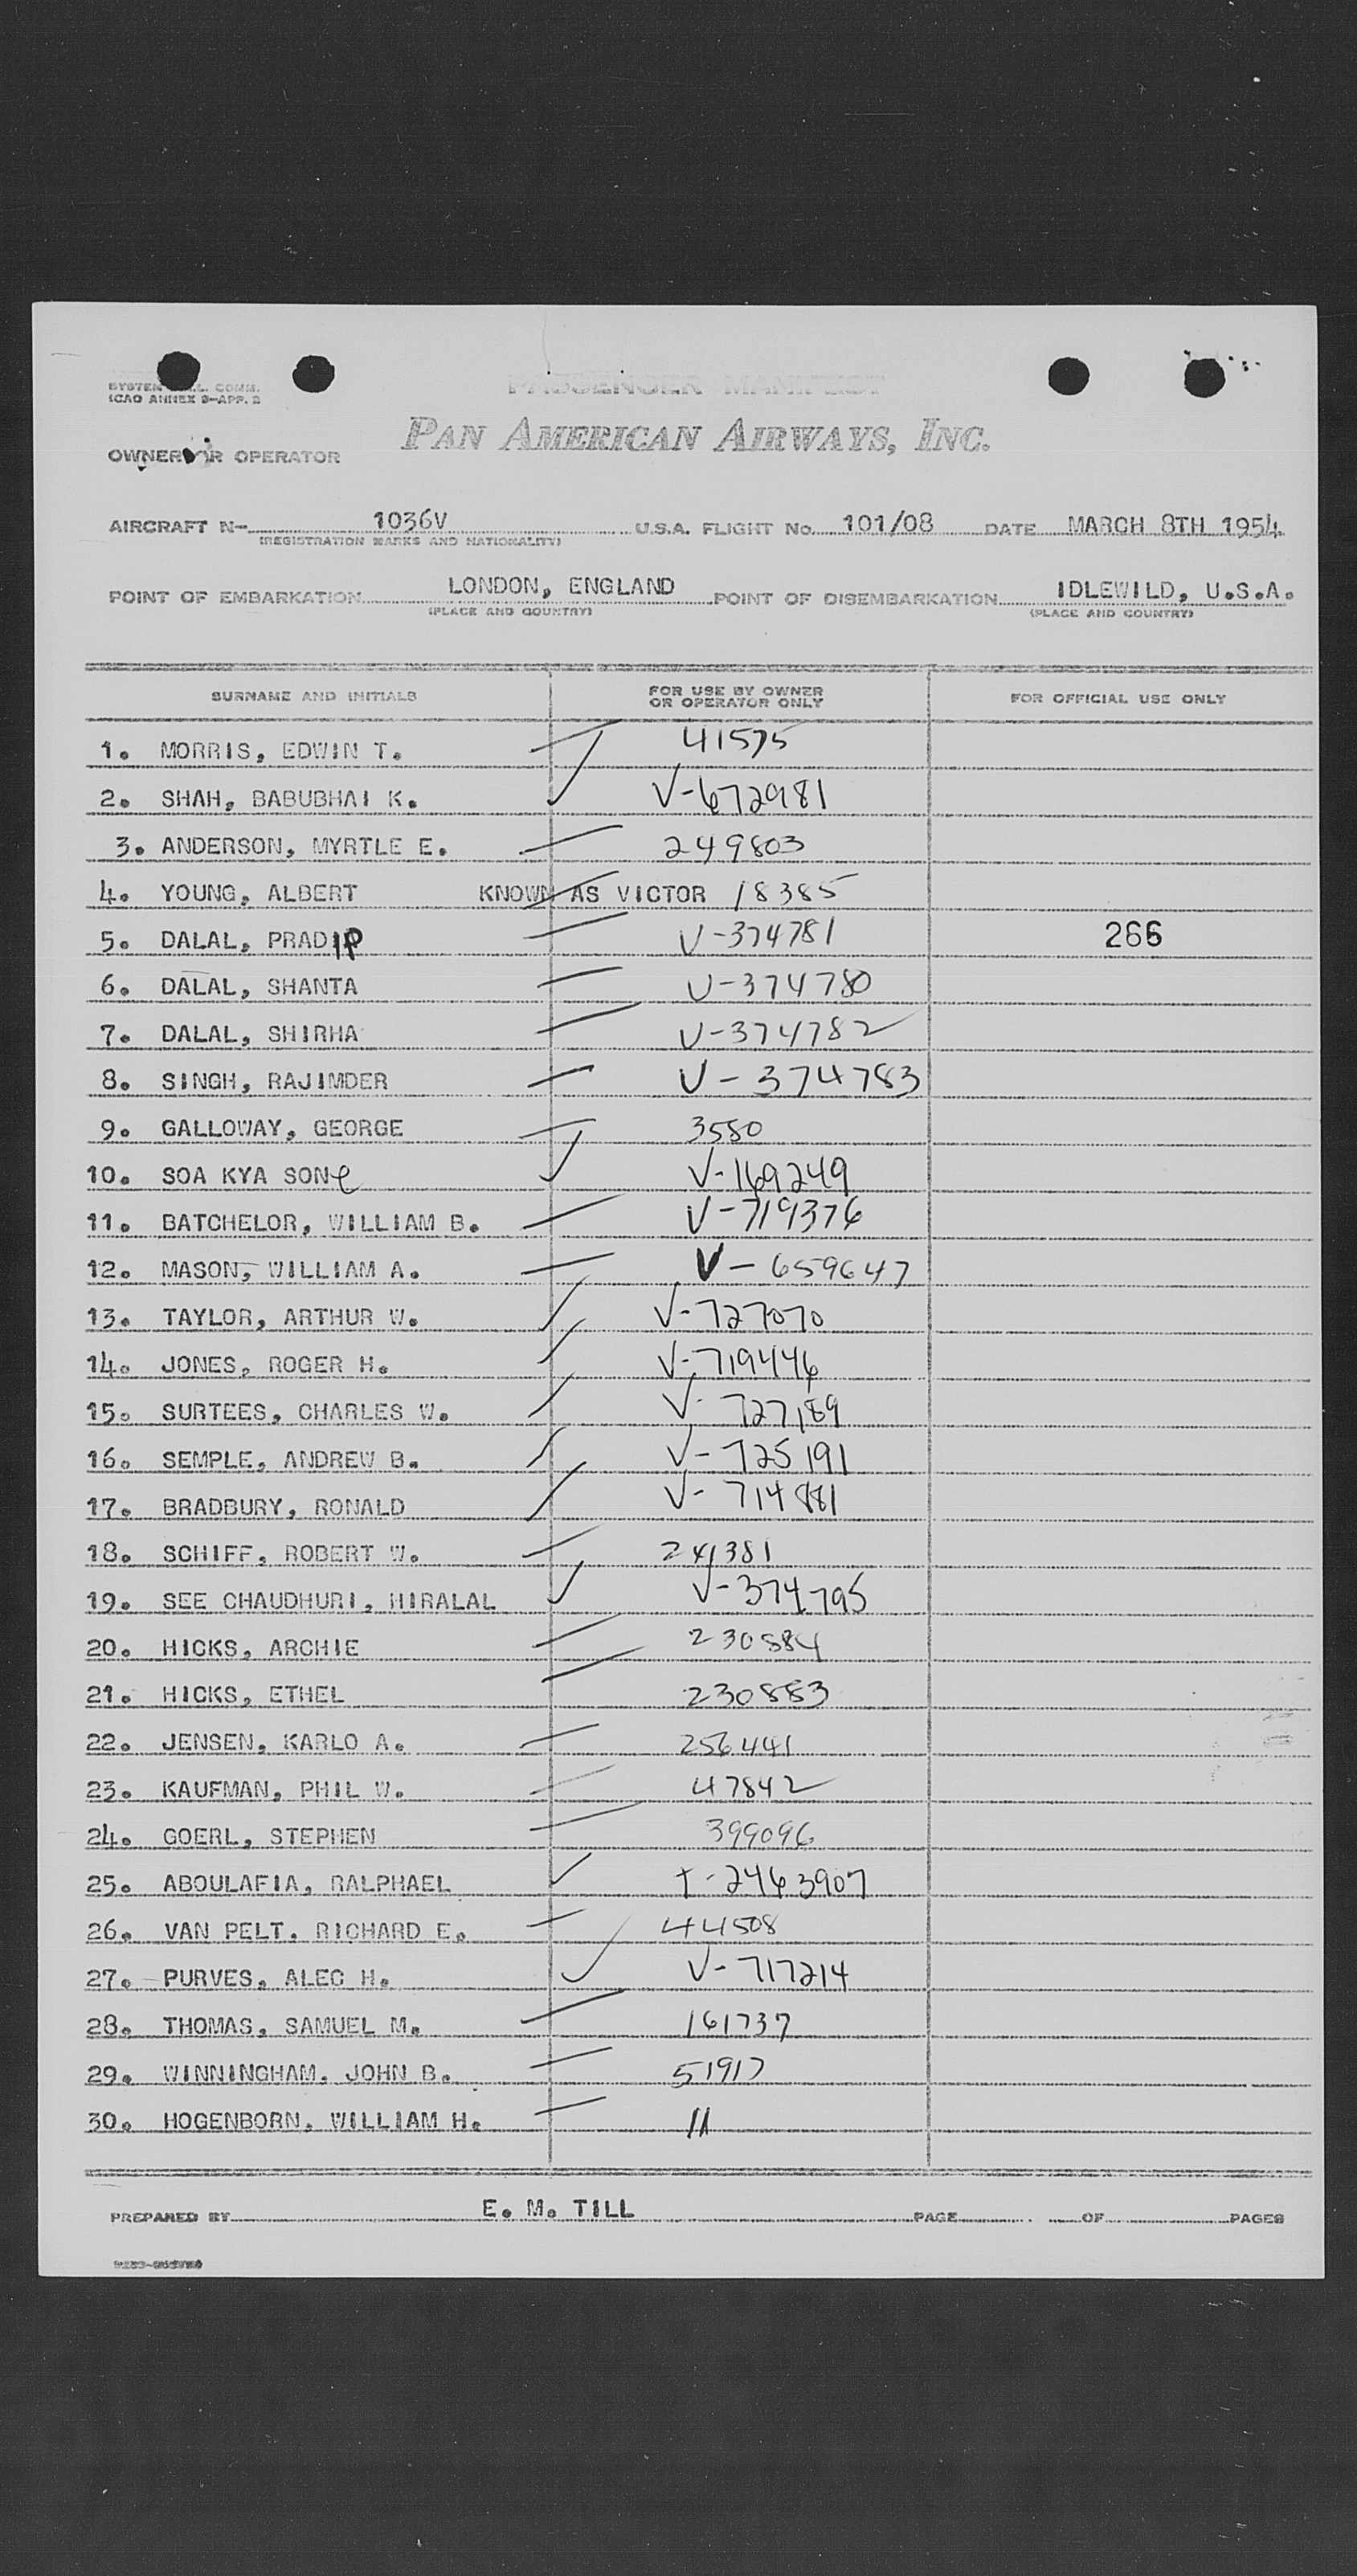 PASSENGER MANIFEST
ICAO ANNEX 9-APP. 2
PAN AMERICAN AIRWAYS, INC.
OWNER OR OPERATOR
AIRCRAFT N- 1036V U.S.A. FLIGHT No. 101/08 DATE MARCH 8TH 1954
(REGISTRATION MARKS AND NATIONALITY)
POINT OF EMBARKATION LONDON, ENGLAND POINT OF DISEMBARKATION IDLEWILD, U.S.A.
(PLACE AND COUNTRY) (PLACE AND COUNTRY)
SURNAME AND INITIALS FOR USE BY OWNER OR OPERATOR ONLY FOR OFFICIAL USE ONLY
1. MORRIS, EDWIN T. 41575
2. SHAH, BABUBHAI K. V-672981
3. ANDERSON, MYRTLE E. 249803
4. YOUNG, ALBERT KNOWN AS VICTOR 18385
5. DALAL, PRADIP V-374781 266
6. DALAL, SHANTA V-374780
7. DALAL, SHIRHA V-374782
8. SINGH, RAJIMDER V-374783
9. GALLOWAY, GEORGE 3580
10. SOA KYA SONe V-169249
11. BATCHELOR, WILLIAM B. V-719376
12. MASON, WILLIAM A. V-659647
13. TAYLOR, ARTHUR W. V-727070
14. JONES, ROGER H. V-719446
15. SURTEES, CHARLES W. V-727189
16. SEMPLE, ANDREW B. V-725191
17. BRADBURY, RONALD V-714881
18. SCHIFF, ROBERT W. 241381
19. SEE CHAUDHURI, HIRALAL V-374795
20. HICKS, ARCHIE 230884
21. HICKS, ETHEL 230883
22. JENSEN, KARLO A. 256441
23. KAUFMAN, PHIL W. 47842
24. GOERL, STEPHEN 399096
25. ABOULAFIA, RALPHAEL T-2463907
26. VAN PELT. RICHARD E. 44508
27. PURVES, ALEC H. V-717214
28. THOMAS, SAMUEL M. 161737
29. WINNINGHAM. JOHN B. 51917
30. HOGENBORN, WILLIAM H. 11
PREPARED BY E. M. TILL PAGE OF PAGES